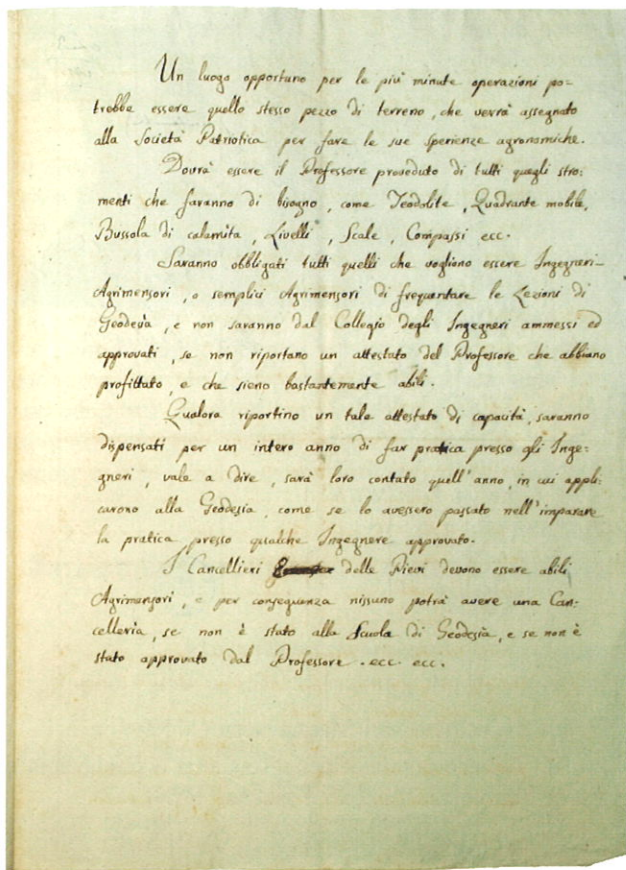 Un luogo opportuno per le più minute operazioni po-
trebbe essere quello stesso pezzo di terreno, che verrà assegnato
alla Società Patriotica per fare le sue sperienze agronomiche.
Dovrà essere il Professore proveduto di tutti quegli stro-
menti che saranno di bisogno, come Teodolite, Quadrante mobile,
Bussola di calamita, Livelli, Scale, Compassi ecc.
Saranno obbligati tutti quelli che vogliono essere Ingegneri-
Agrimensori, o semplici Agrimensori di frequentare le Lezioni di
Geodesìa, e non saranno dal Collegio degli Ingegneri ammessi ed
approvati, se non riportano un attestato del Professore che abbiano
profittato, e che sieno bastantemente abili.
Qualora riportino un tale attestato di capacità, saranno
dispensati per un intero anno di far pratica presso gli Inge-
gneri, vale a dire, sarà loro contato quell'anno, in cui appli-
carono alla Geodesìa, come se lo avessero passato nell'imparare
la pratica presso qualche Ingegnere approvato.
I Cancellieri delle Pievi devono essere abili
Agrimensori, e per conseguenza nissuno potrà avere una Can-
celleria, se non è stato alla Scuola di Geodesìa, e se non è
stato approvato dal Professore. ecc. ecc.